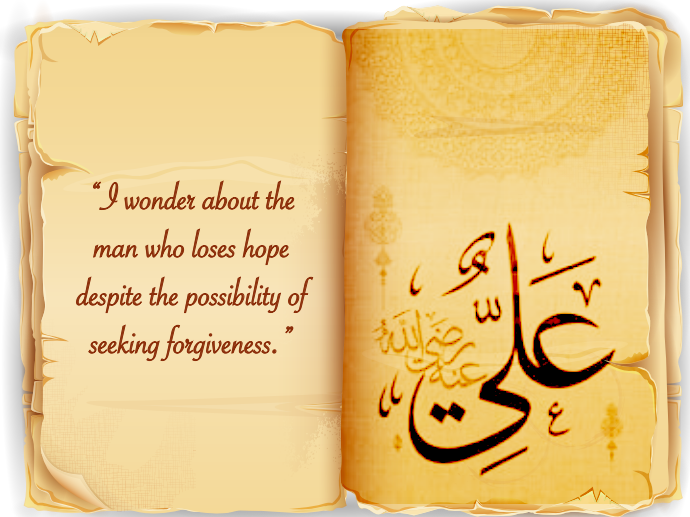 “I wonder about the
man who loses hope
despite the possibility of
seeking forgiveness.”
عَلِيٌّ
رضي الله
عنه